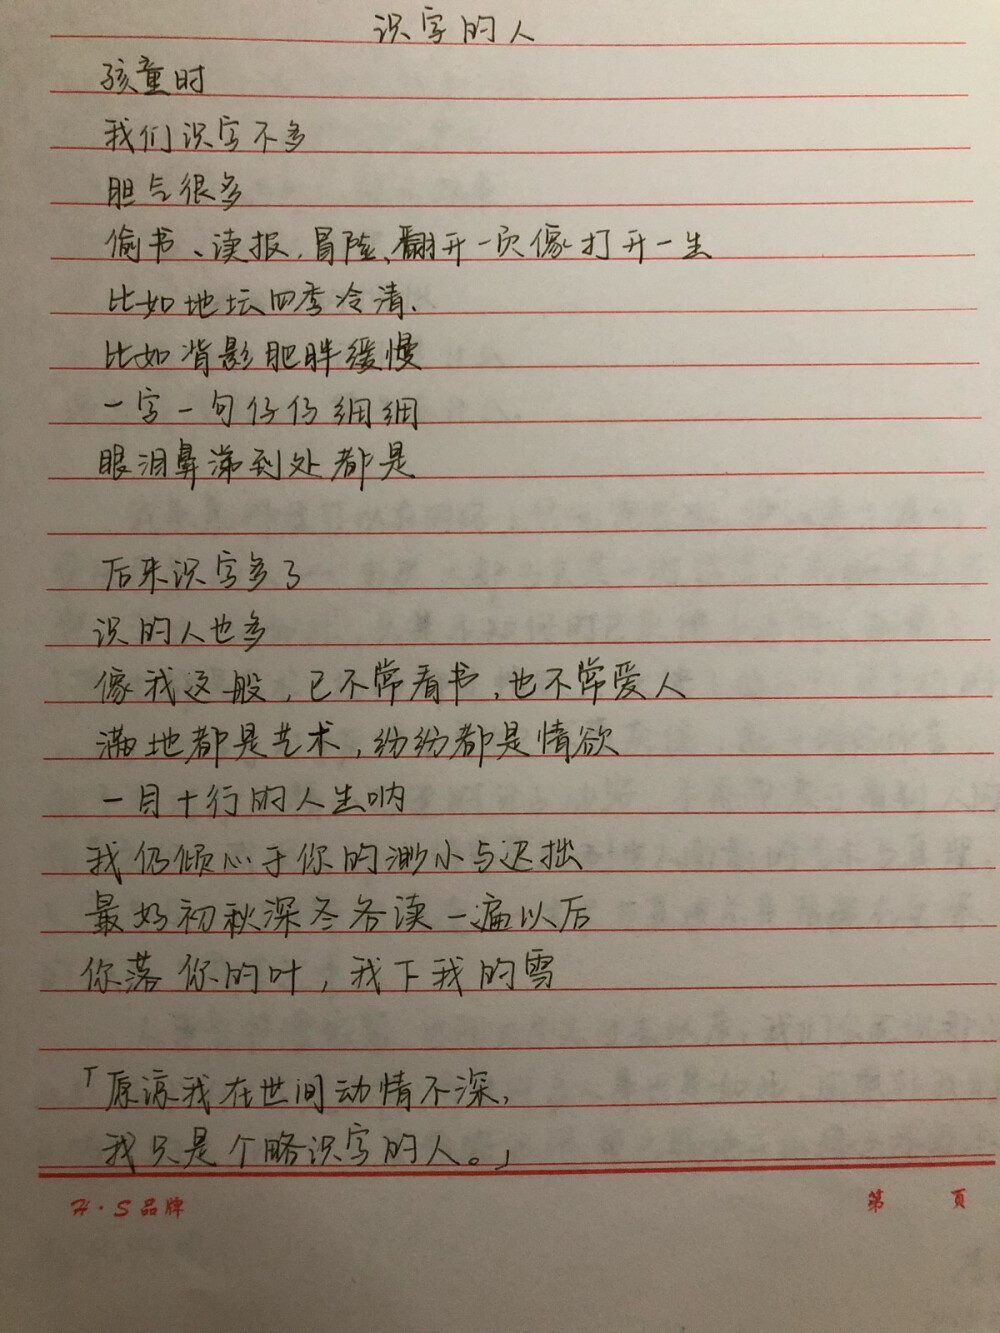 识字的人
孩童时
我们识字不多
胆气很多
偷书、读报,冒险、翻开一页像打开一生
比如地坛四季冷清、
比如背影肥胖缓慢
一字一句仔仔细细
眼泪鼻涕到处都是
后来识字多了
识的人也多
像我这般,已不常看书,也不常爱人
满地都是艺术,纷纷都是情欲
一目十行的人生呐
我仍倾心于你的渺小与迟拙
最好初秋深冬各读一遍以后
你落你的叶,我下我的雪
「原谅我在世间动情不深,
我只是个略识字的人。」
H·S品牌
第 页